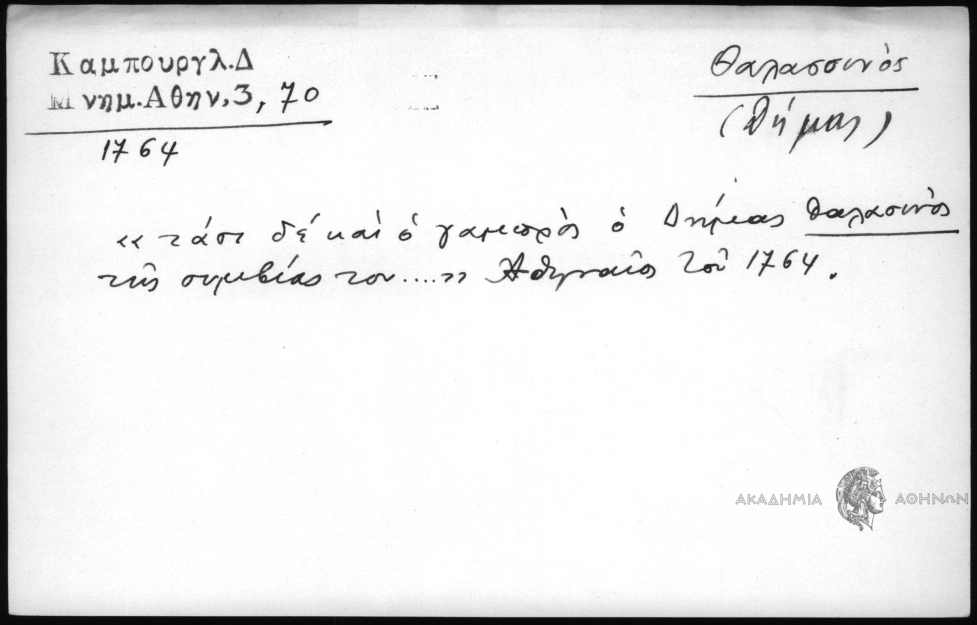 Καμπουργλ.Δ
Μνημ.Αθην.3, 70
1764
Θαλασσινὸς
(Δήμας)
«τάσι δέ καὶ ὁ γαμπρὸς ὁ Δήμας Θαλασινὸς
τῆς συμβίας του....» Ἀθηναῖος τοῦ 1764.
ΑΚΑΔΗΜΙΑ ΑΘΗΝΩΝ